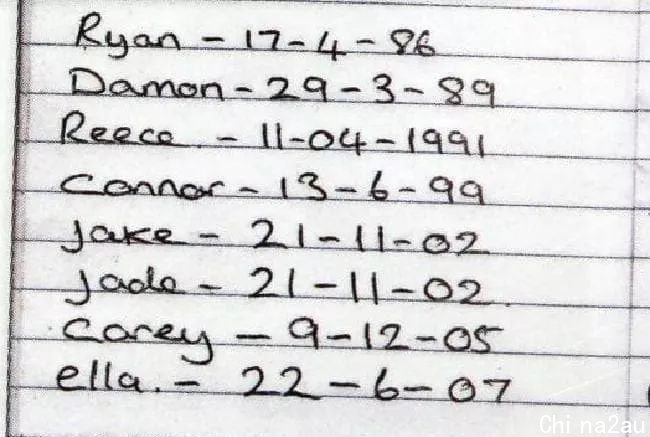 Ryan - 17-4-86
Damon - 29-3-89
Reece. - 11-04-1991
Connor - 13-6-99
Jake - 21-11-02
Jade - 21-11-02.
Corey - 9-12-05
ella. - 22-6-07
China2au